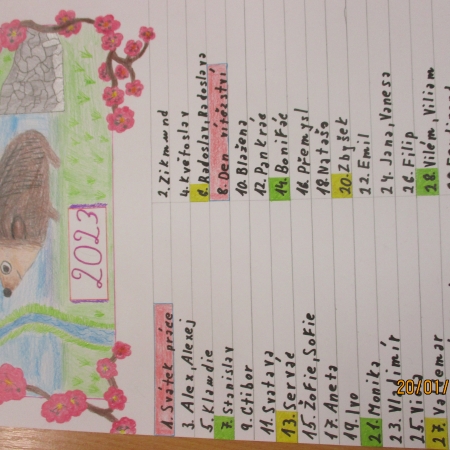 2023
1. Svátek práce
2. Zikmund
3. Alex, Alexej
4. Květoslav
5. Klaudie
6. Radoslav, Radoslava
7. Stanislav
8. Den vítězství
9. Ctibor
10. Blažena
11. Svatava
12. Pankrác
13. Servác
14. Bonifác
15. Žofie, Sofie
16. Přemysl
17. Aneta
18. Nataša
19. Ivo
20. Zbyšek
21. Monika
22. Emil
23. Vladimír
24. Jana, Vanesa
25. Viola
26. Filip
27. Valdemar
28. Vilém, Viliam
20/01/